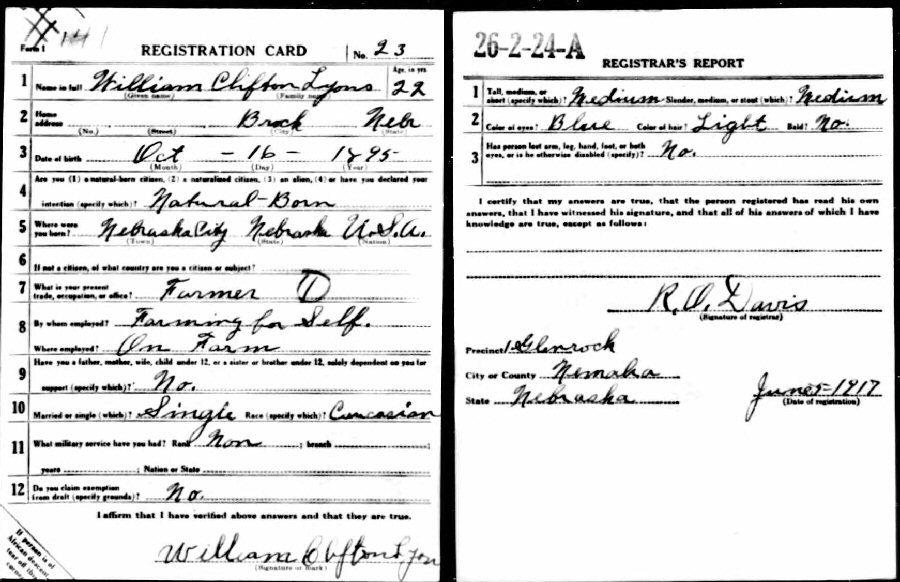 141
Form 1
REGISTRATION CARD No. 23
1 Name in full William Clifton Lyons Age, in yrs 22
(Given name) (Family name)
2 Home address Brock Nebr
(No.) (Street) (City) (State)
3 Date of birth Oct - 16 - 1895
(Month) (Day) (Year)
Are you (1) a natural-born citizen, (2) a naturalized citizen, (3) an alien, (4) or have you declared your
4 intention (specify which)? Natural-Born
5 Where were you born? Nebraska City Nebraska U.S.A.
(Town) (State) (Nation)
6 If not a citizen, of what country are you a citizen or subject?
7 What is your present trade, occupation, or office? Farmer
8 By whom employed? Farming for Self.
Where employed? On Farm
Have you a father, mother, wife, child under 12, or a sister or brother under 12, solely dependent on you for
9 support (specify which)? No.
10 Married or single (which)? Single Race (specify which)? Caucasian
11 What military service have you had? Rank Non ; branch ;
years ; Nation or State
12 Do you claim exemption from draft (specify grounds)? No.
I affirm that I have verified above answers and that they are true.
William Clifton Lyon
(Signature or mark)
If person is of
African descent,
tear off this
corner
26-2-24-A
REGISTRAR'S REPORT
1 Tall, medium, or short (specify which)? Medium Slender, medium, or stout (which)? Medium
2 Color of eyes? Blue Color of hair? Light Bald? No.
3 Has person lost arm, leg, hand, foot, or both eyes, or is he otherwise disabled (specify)? No.
I certify that my answers are true, that the person registered has read his own
answers, that I have witnessed his signature, and that all of his answers of which I have
knowledge are true, except as follows:
R. O. Davis
(Signature of registrar)
Precinct Glenrock
City or County Nemaha
State Nebraska
June 5-1917
(Date of registration)